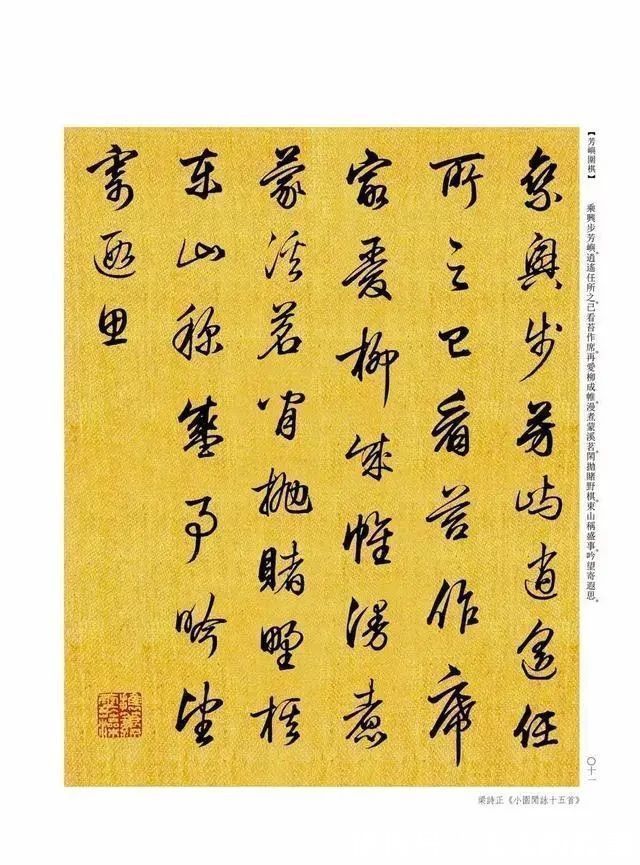 【芳嶼圍棋】
乘興步芳嶼。逍遙任所之。已看苔作席。再愛柳成帷。漫煮蒙溪茗。閑拋賭野棋。東山稱盛事。吟望寄遐思。
乘興步芳嶼逍遙任
所之已看苔作席
最愛柳成帷漫煮
蒙溪茗閒拋賭野棋
東山稱盛事吟望
寄遐思
〇十一
梁詩正《小園閒詠十五首》